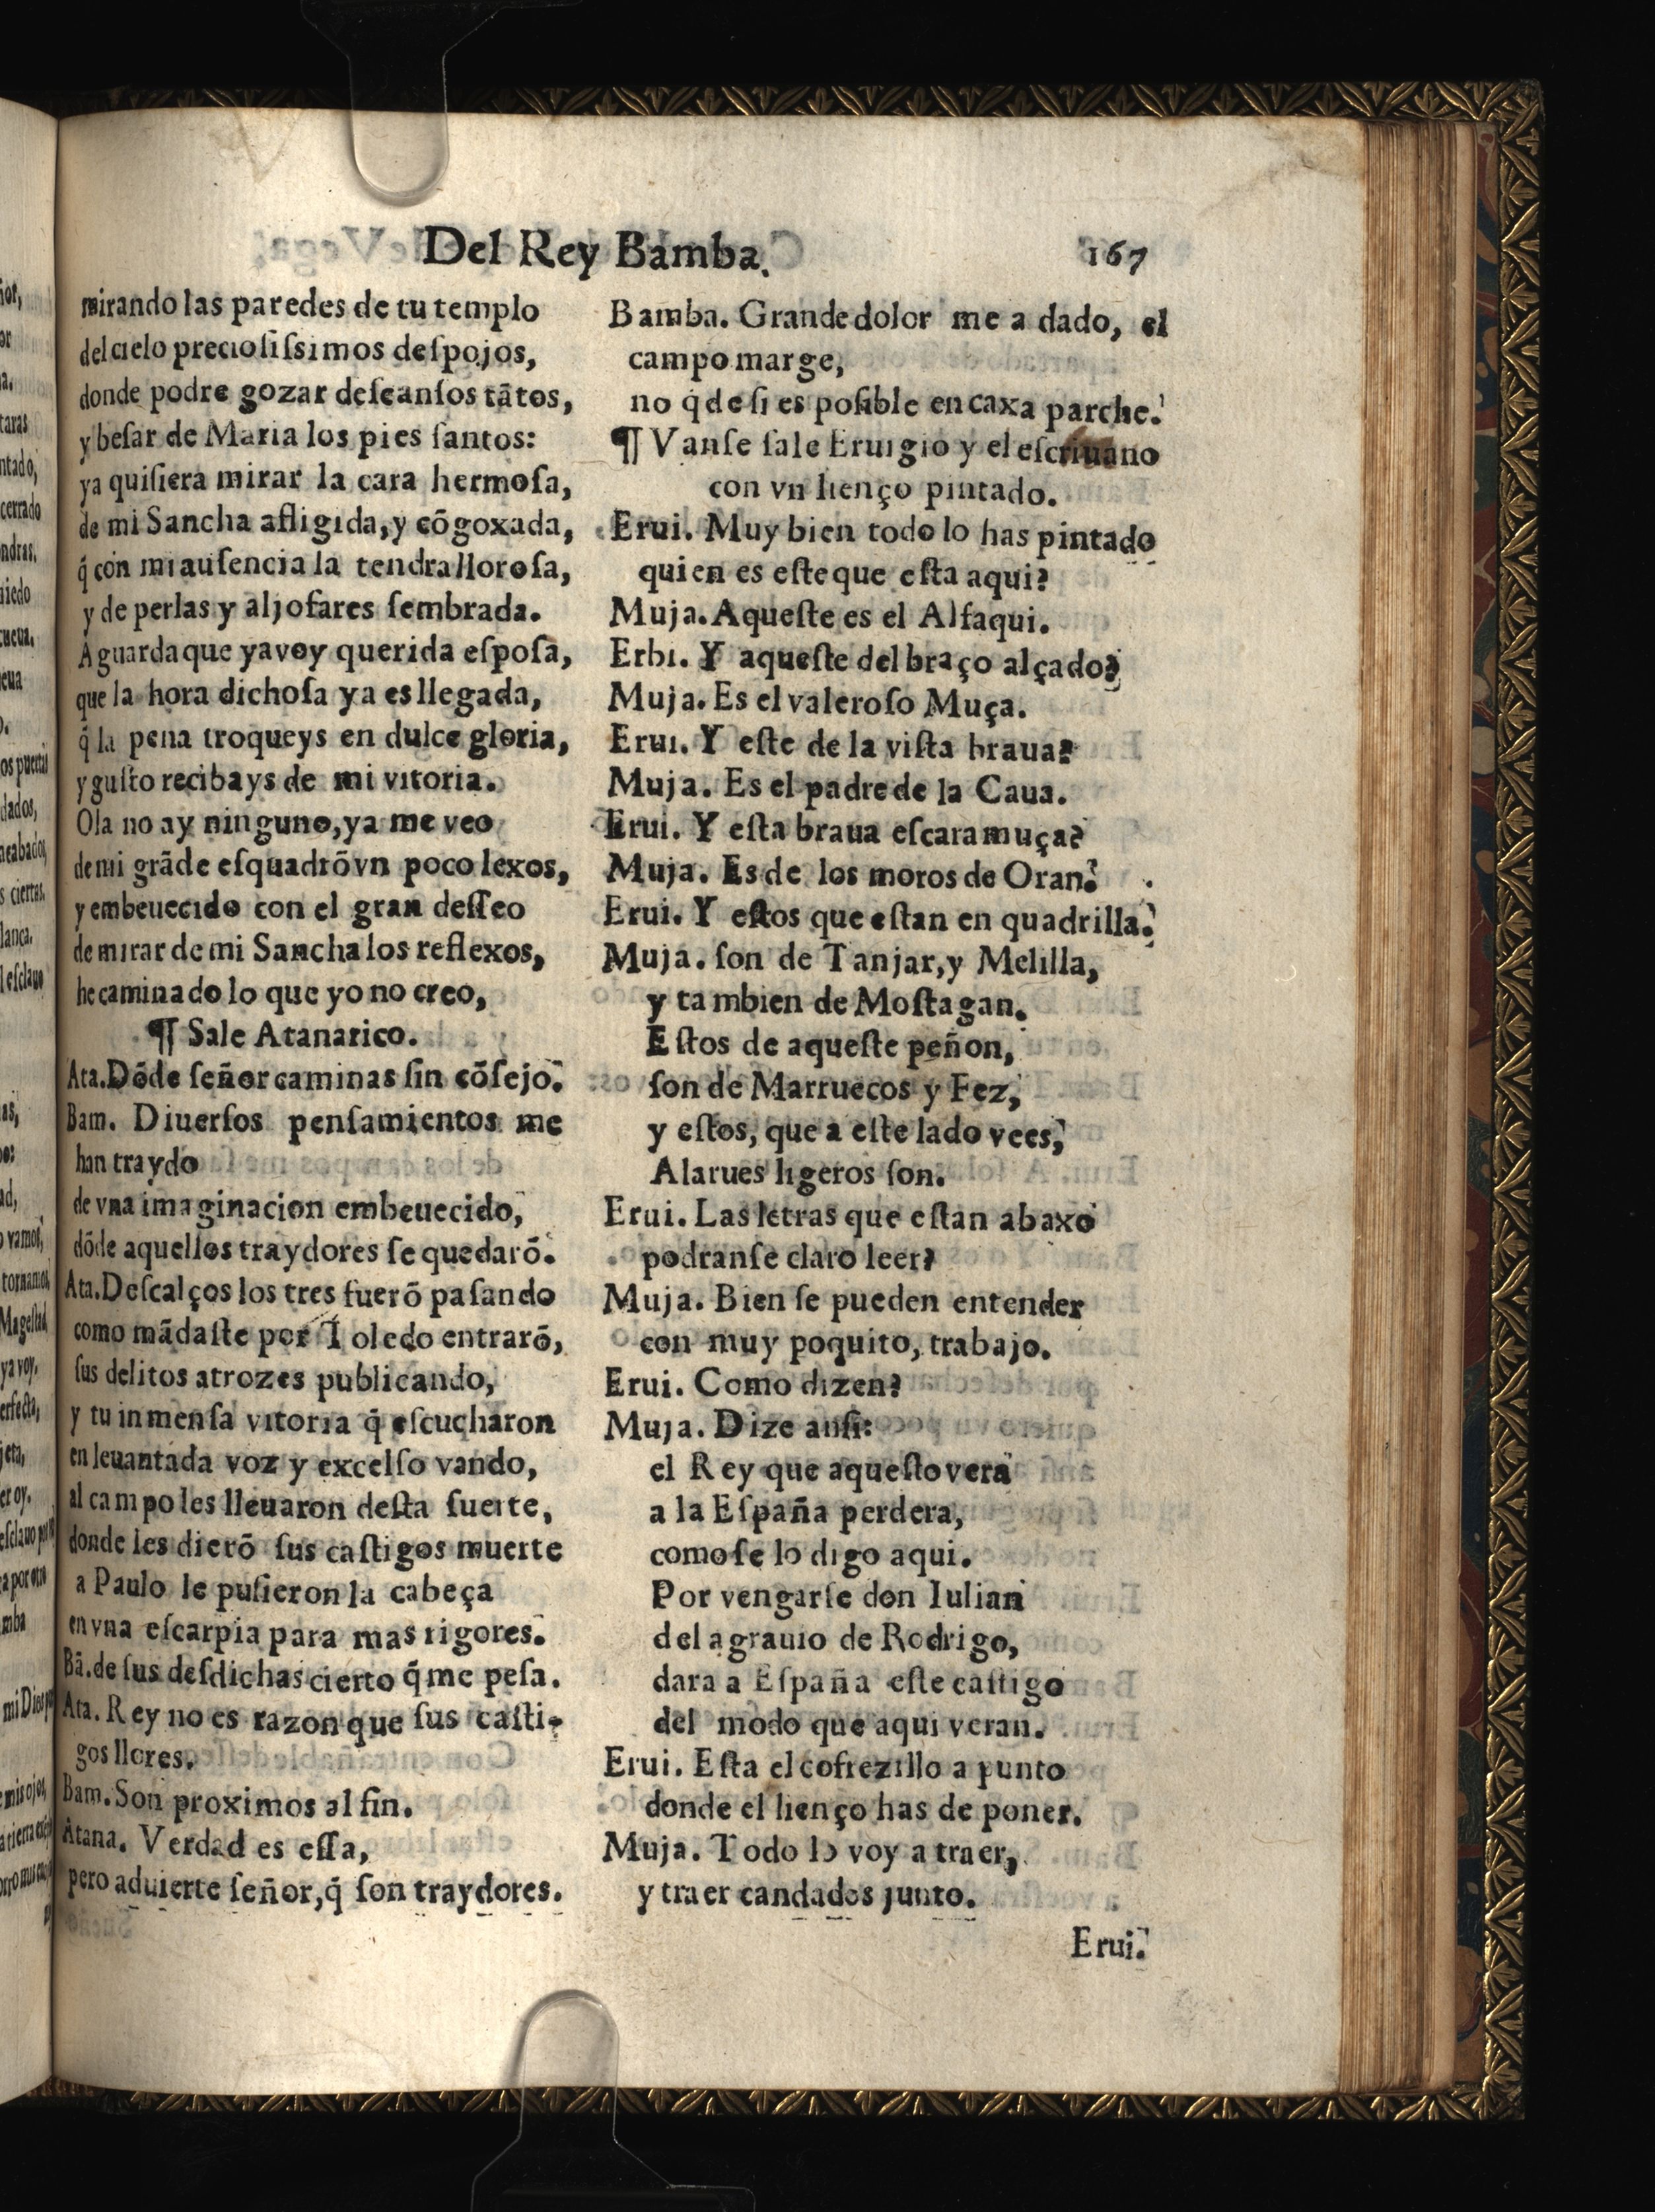 Del Rey Bamba. 167
mirando las paredes de tu templo
del cielo preciosissimos despojos,
donde podre gozar descansos tãtos,
y besar de Maria los pies santos:
ya quisiera mirar la cara hermosa,
de mi Sancha afligida, y cõgoxada,
q̃ con mi ausencia la tendra llorosa,
y de perlas y aljofares sembrada.
Aguarda que ya voy querida esposa,
que la hora dichosa ya es llegada,
q̃ la pena troqueys en dulce gloria,
y gusto recibays de mi vitoria.
Ola no ay ninguno, ya me veo
de mi grãde esquadrõ vn poco lexos,
y embeuecido con el gran desseo
de mirar de mi Sancha los reflexos,
he caminado lo que yo no creo,
¶ Sale Atanarico.
Ata. Dõde señor caminas sin cõsejo.
Bam. Diuersos pensamientos me
han traydo
de vna imaginacion embeuecido,
dõde aquellos traydores se quedarõ.
Ata. Descalços los tres fuerõ pasando
como mãdaste por Toledo entrarõ,
sus delitos atrozes publicando,
y tu inmensa vitoria q̃ escucharon
en leuantada voz y excelso vando,
al campo les lleuaron desta suerte,
donde les dierõ sus castigos muerte
a Paulo le pusieron la cabeça
en vna escarpia para mas rigores.
Bã. de sus desdichas cierto q̃ me pesa.
Ata. Rey no es razon que sus casti-
gos llores.
Bam. Son proximos al fin.
Atana. Verdad es essa,
pero aduierte señor, q̃ son traydores.
Bamba. Grande dolor me a dado, el
campo marge,
no q̃de si es posible en caxa parche.
¶ Vanse sale Eruigio y el escriuano
con vn lienço pintado.
Erui. Muy bien todo lo has pintado
quien es este que esta aqui?
Muja. Aqueste es el Alfaqui.
Erbi. Y aqueste del braço alçado?
Muja. Es el valeroso Muça.
Erui. Y este de la vista braua?
Muja. Es el padre de la Caua.
Erui. Y esta braua escaramuça?
Muja. Es de los moros de Oran?
Erui. Y estos que estan en quadrilla.
Muja. son de Tanjar, y Melilla,
y tambien de Mostagan.
Estos de aqueste peñon,
son de Marruecos y Fez,
y estos, que a este lado vees,
Alarues ligeros son.
Erui. Las letras que estan abaxo
podranse claro leer?
Muja. Bien se pueden entender
con muy poquito, trabajo.
Erui. Como dizen?
Muja. Dize ansi:
el Rey que aquesto vera
a la España perdera,
como se lo digo aqui.
Por vengarse don Iulian
del agrauio de Rodrigo,
dara a España este castigo
del modo que aqui veran.
Erui. Esta el cofrezillo a punto
donde el lienço has de poner.
Muja. Todo lo voy a traer,
y traer candados junto.
Erui.